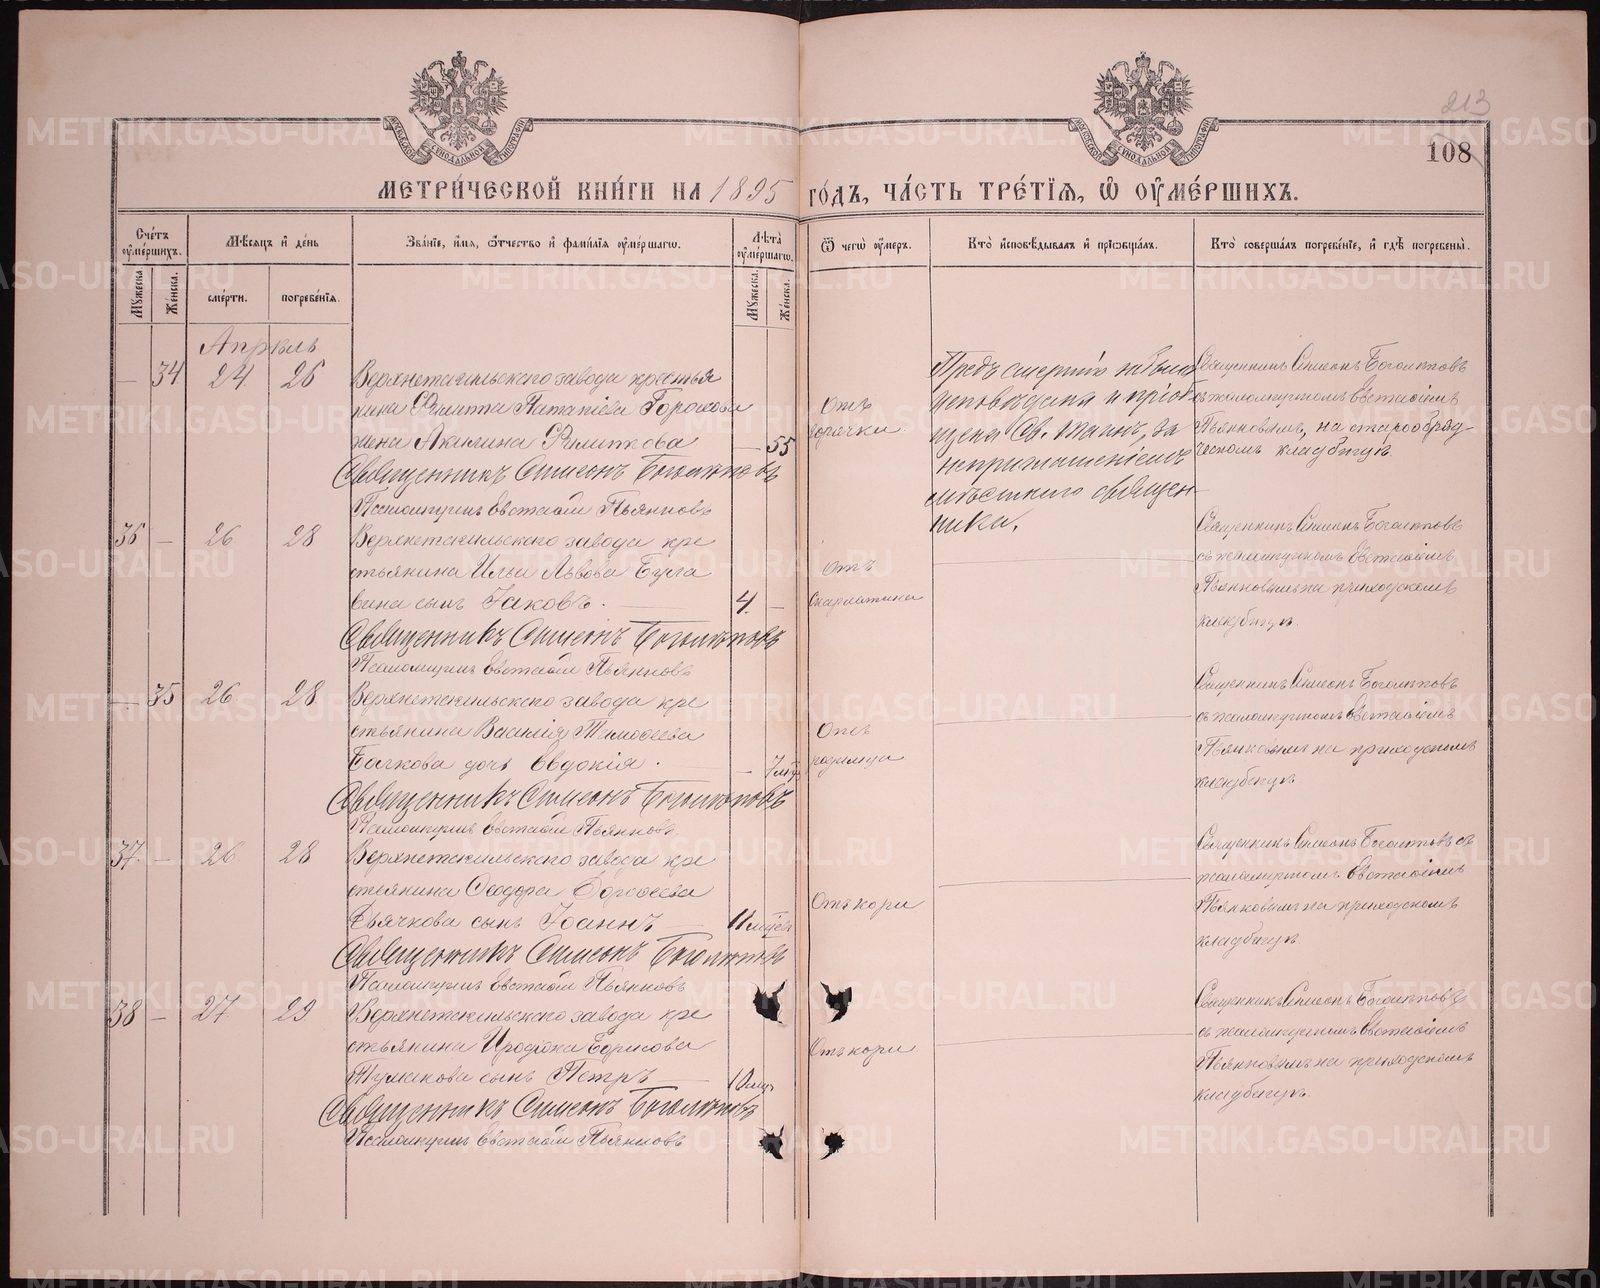 213
108
МЕТРИ́ЧЕСКОЙ КНИ́ГИ НА 1895 ГО́ДЪ, ЧА́СТЬ ТРЕ́ТІЯ, Ѡ҆ ОУ҆МЕ́РШИХЪ.
Сче́тъ оу҆ме́ршихъ.
Мѣ́сяцъ и҆ де́нь
Зва́нїе, и҆́мя, ѻ҆́тчество и҆ фамі́лїя оу҆ме́ршагѡ.
Лѣ́та оу҆ме́ршагѡ.
Ѿ чегѡ̀ оу҆́меръ.
Кто̀ и҆сповѣ́дывалъ и҆ прїѡбща́лъ.
Кто̀ соверша́лъ погребе́нїе, и҆ гдѣ̀ погребены̀.
Мꙋ́жеска.
Же́нска.
сме́рти.
погребе́нїя.
Мꙋ́жеска.
Же́нска.
Апрѣль
— 34 24 26
Верхнетагильскаго завода крестья
нина Филиппа Потапіева
жена Акилина Филиппова — 55
Священникъ Симеонъ Боголѣповъ
Псаломщикъ Евстафій Пьянковъ
Отъ
горячки.
Предъ смертію
исповѣдана и пріоб
щена Св. Таинъ, за
неприглашеніемъ
мѣстнаго священ-
ника.
Священникъ Симеонъ Боголѣповъ
съ псаломщикомъ Евстафіемъ
Пьянковымъ, на старообряд-
ческомъ кладбищѣ.
36 — 26 28
Верхнетагильскаго завода кре
стьянина Ильи Львова Була
вина сынъ Іаковъ. 4. —
Священникъ Симеонъ Боголѣповъ
Псаломщикъ Евстафій Пьянковъ
Отъ
скарлатины
Священникъ Симеонъ Боголѣповъ
съ псаломщикомъ Евстафіемъ
Пьянковымъ на приходскомъ
кладбищѣ.
— 35 26 28
Верхнетагильскаго завода кре
стьянина Василія Тимофеева
дочь Евдокія. — 7 мцъ
Священникъ Симеонъ Боголѣповъ
Псаломщикъ Евстафій Пьянковъ
Отъ
родимца
Священникъ Симеонъ Боголѣповъ
съ псаломщикомъ Евстафіемъ
Пьянковымъ на приходскомъ
кладбищѣ
37 — 26 28
Верхнетагильскаго завода кре
стьянина Ѳеодора Дороѳеева
Дьячкова сынъ Іоаннъ 11 мцевъ
Священникъ Симеонъ Боголѣповъ
Псаломщикъ Евстафій Пьянковъ
Отъ кори
Священникъ Симеонъ Боголѣповъ съ
псаломщикомъ Евстафіемъ
Пьянковымъ на приходскомъ
кладбищѣ
38 — 27 29
Верхнетагильскаго завода кре
стьянина Иродіона Борисова
Тумакова сынъ Петръ 10 мцъ
Священникъ Симеонъ Боголѣповъ
Псаломщикъ Евстафій Пьянковъ
Отъ кори
Священникъ Симеонъ Боголѣповъ
съ псаломщикомъ Евстафіемъ
Пьянковымъ на приходскомъ
кладбищѣ.
METRIKI.GASO-URAL.RU